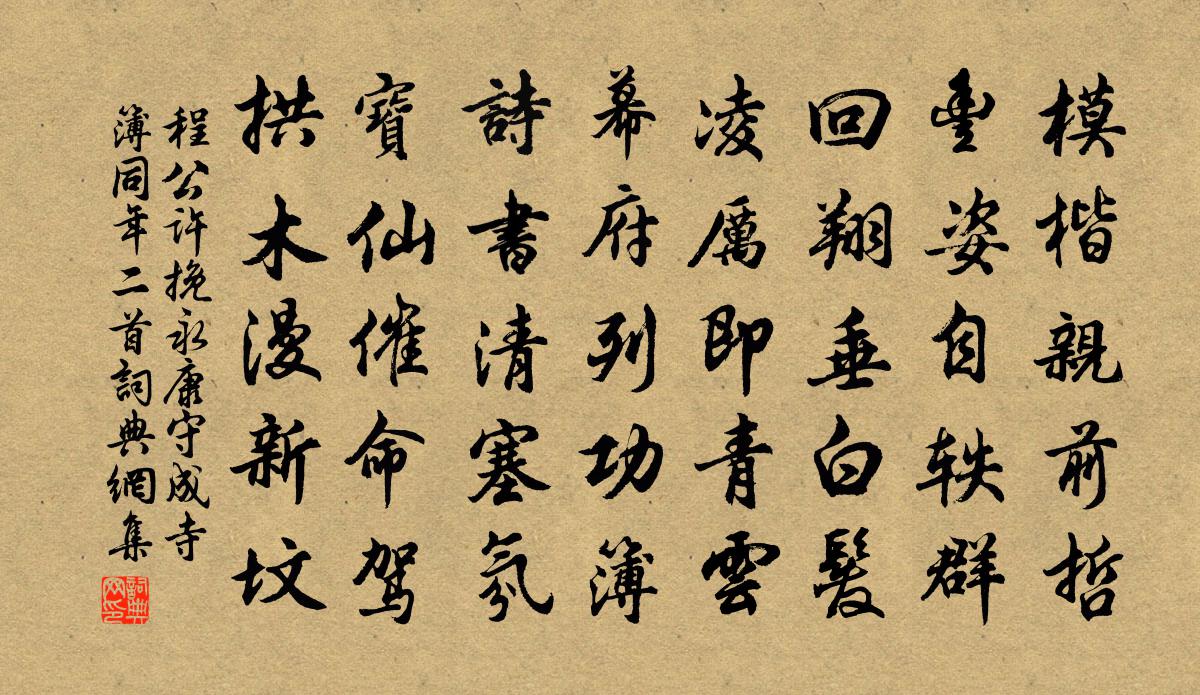 模楷親前哲
豊姿自軼群
回翔垂白髮
凌厲即青雲
幕府列功簿
詩書清塞氛
寶仙催命駕
拱木漫新坟
程公許挽永康守成寺
簿同年二首詞典網集
詞典网印